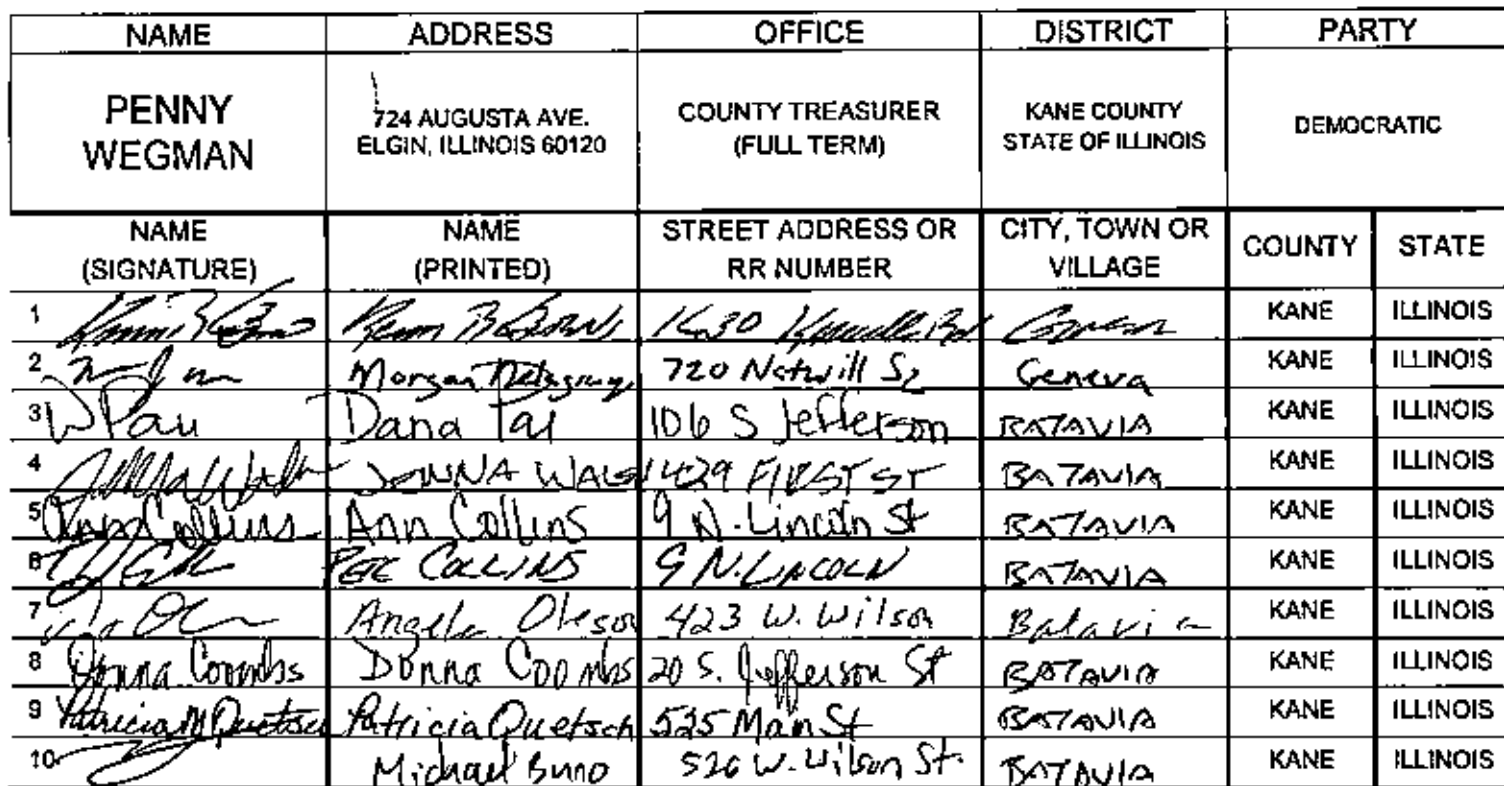 NAME ADDRESS OFFICE DISTRICT PARTY
PENNY WEGMAN 724 AUGUSTA AVE. ELGIN, ILLINOIS 60120 COUNTY TREASURER (FULL TERM) KANE COUNTY STATE OF ILLINOIS DEMOCRATIC
NAME (SIGNATURE) NAME (PRINTED) STREET ADDRESS OR RR NUMBER CITY, TOWN OR VILLAGE COUNTY STATE
1 KANE ILLINOIS
2 Morgan 720 Geneva KANE ILLINOIS
3 Dana 106 S Jefferson BATAVIA KANE ILLINOIS
4 429 FIRST ST BATAVIA KANE ILLINOIS
5 Ann Collins Ann Collins 9 N. Lincoln St BATAVIA KANE ILLINOIS
6 COLLINS 9 N. LINCOLN BATAVIA KANE ILLINOIS
7 Angela Oleson 423 W. Wilson Batavia KANE ILLINOIS
8 Donna Coombs Donna Coombs 20 S. Jefferson St BATAVIA KANE ILLINOIS
9 Patricia M Quetsch Patricia Quetsch 525 Main St BATAVIA KANE ILLINOIS
10 Michael 526 W. Wilson St. BATAVIA KANE ILLINOIS